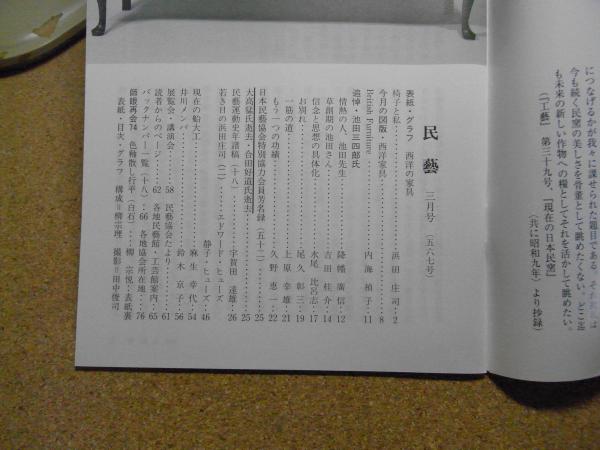 につなげるかが我々に課せられた題目である。それ故私は
今も続く民窯の美しさを骨董として眺めたくない。どこまで
も未来の新しい作物への糧としてそれを活かして眺めたい。
(『工藝』第三十九号、『現在の日本民窯』
(共に昭和九年)より抄録)
民藝 三月号 (五六七号)
表紙・グラフ 西洋の家具
椅子と私……浜田庄司…2
今月の図版・西洋家具……8
British Furniture……内海禎子…11
追悼・池田三四郎氏
情熱の人、池田先生……降幡廣信…12
草創期の池田さん……吉田桂介…14
信念と思想の具体化……水尾比呂志…17
お別れ……尾久彰三…19
一筋の道……上原幸雄…21
もう一つの功績……久野恵一…22
日本民藝協会特別協力会員芳名録(五十二)……25
大高猛氏逝去・合田好道氏逝去……25
民藝運動史年譜稿(十八)……宇賀田達雄…26
若き日の浜田庄司(二)……エドワード・ヒューズ
静子・ヒューズ…46
現在の船大工……麻生幸代…54
井川メンバ……鈴木京子…56
展覧会・講演会……58 民藝協会たより……61
読者からのページ……62 各地民藝館・工芸館案内…65
バックナンバー一覧(十八)…66 各地協会所在地……76
師眼再会74 色釉散し行平(白石)……柳宗悦…表紙裏
表紙・目次・グラフ 構成=柳宗理 撮影=田中俊司